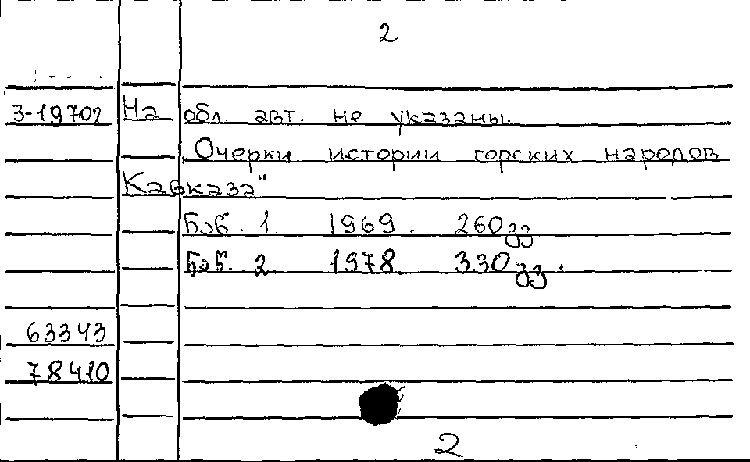 2
3-19702 На обл. авт. не указаны.
Очерки истории горских народов
Кавказа"
ნაწ. 1 1969. 260 გვ
ნაწ. 2 1978. 330 გვ.
63343
78410
2